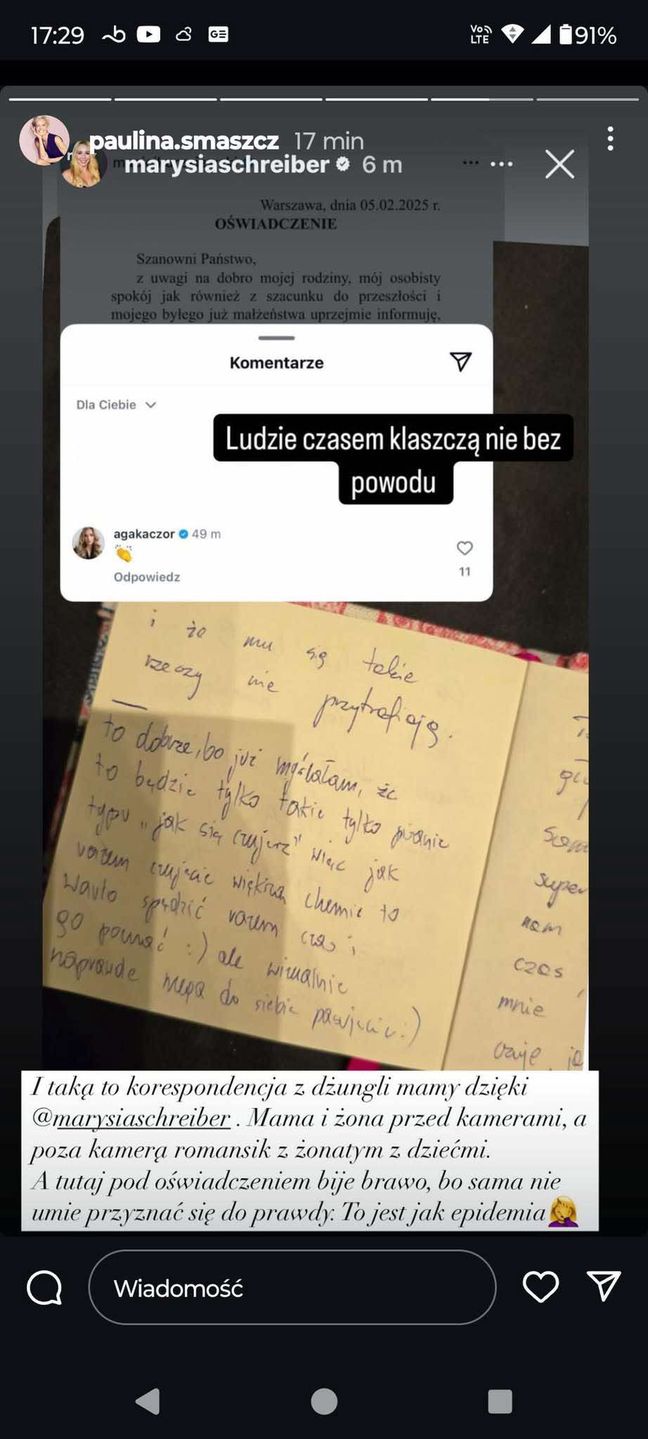 17:29
Vo LTE
91%
paulina.smaszcz 17 min
marysiaschreiber 6 m
Warszawa, dnia 05.02.2025 r.
OŚWIADCZENIE
Szanowni Państwo,
z uwagi na dobro mojej rodziny, mój osobisty
spokój jak również z szacunku do przeszłości i
mojego byłego już małżeństwa uprzejmie informuję,
Komentarze
Dla Ciebie
Ludzie czasem klaszczą nie bez
powodu
agakaczor 49 m
Odpowiedz
11
i że mu są takie
rzeczy nie przytrafiają.
to dobrze, bo już myślałam, że
to będzie tylko takie tylko pytanie
typu "jak się czujesz" więc jak
razem czujecie większą chemię to
warto spędzić razem czas i
go poznać :) ale wizualnie
naprawdę mega do siebie pasujecie :)
super
nam
czas,
mnie
I taką to korespondencja z dżungli mamy dzięki
@marysiaschreiber . Mama i żona przed kamerami, a
poza kamerą romansik z żonatym z dziećmi.
A tutaj pod oświadczeniem bije brawo, bo sama nie
umie przyznać się do prawdy. To jest jak epidemia🤦‍♀️
Wiadomość